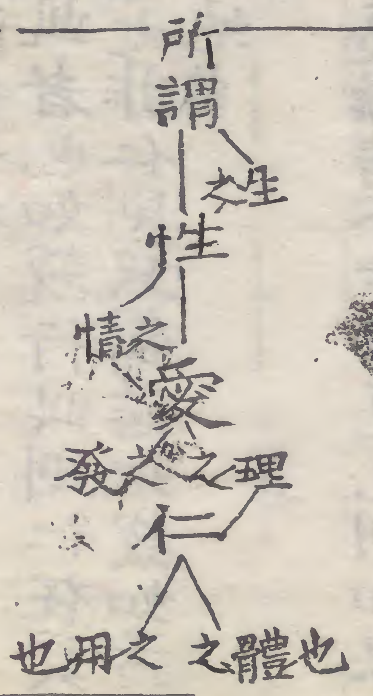 所
謂
之生
性
情之
愛
發之之理
仁
也用之之體也